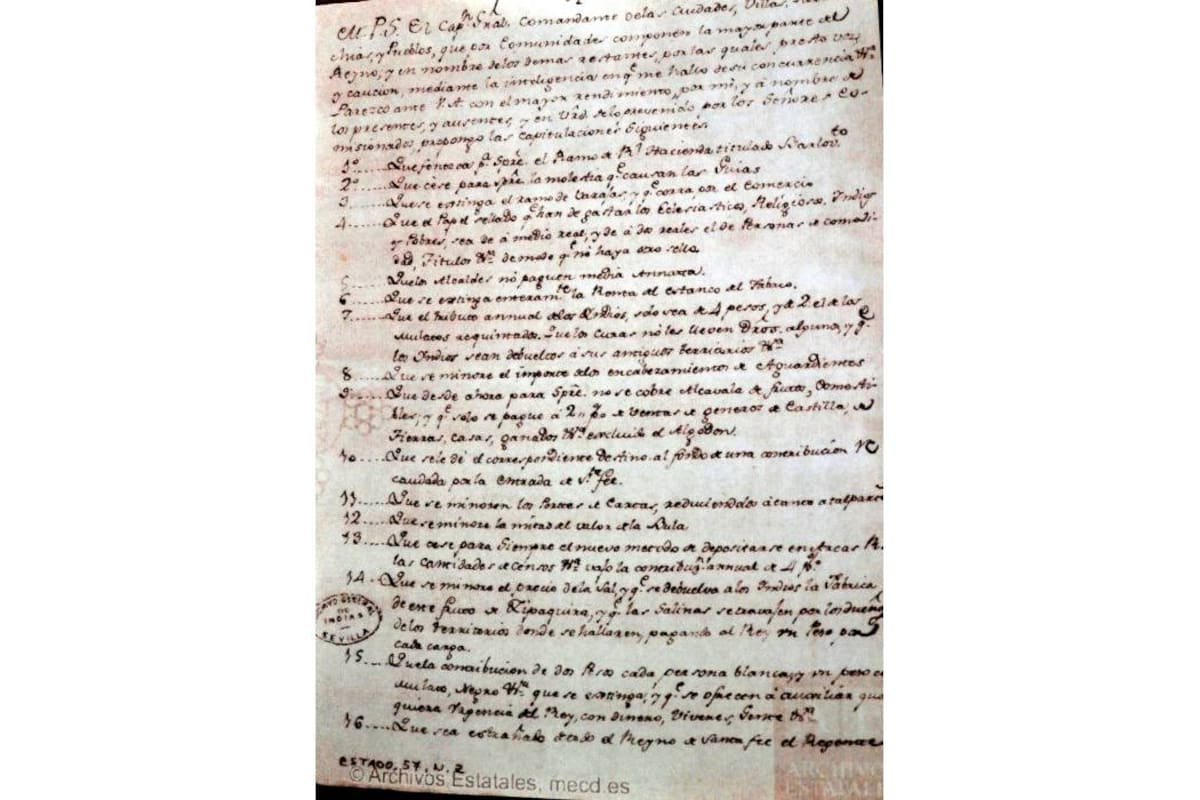 M. P. S. El Cap.n Gral. Comandante de las Ciudades, Villas,
chias, y Pueblos, que por Comunidades componen la mayor parte del
Reyno, y en nombre de los demas restantes, por las quales, presto voz,
y caucion, mediante la inteligencia en q.e me hallo de su concurrencia
Parezco ante V.A. con el mayor rendimiento, por mi, y á nombre de
los presentes, y ausentes, y en vrd. de lo prevenido por los Señores Co-
misionados, propongo las Capitulaciones siguientes.
1º.....Que fenezca p.a Spre. el Ramo de Rl Hacienda titulado Barlov.to
2º.....Que cese para Spre. la molestia q.e causan las Guias
3.....Que se extinga el ramo de Varajas, y q.e corra por el Comercio
4.....Que el Pap.l sellado q.e han de gastar los Eclesiasticos, Religiosos, Indios
y Pobres, sea de á medio real, y de á dos reales el de Personas de comodi-
dad, Titulos de modo q.e no haya otro sello.
5.....Que los Alcaldes no paguen media Annata.
6.....Que se extinga enteram.te la Renta del estanco del Tabaco.
7.....Que el tributo annual de los Yndios, solo sea de 4 pesos, y de 2 el de los
Mulatos requintados. Que los Curas no les lleven Dros. alguno, y q.e
los Indios sean debueltos á sus antiguos territorios
8.....Que se minore el importe de los encabezamientos de Aguardientes
9.....Que desde ahora para Spre. no se cobre Alcavala de frutos, Comesti-
bles, y q.e solo se pague á 2 de ventas de generos de Castilla, de
Tierras, casas, ganados excluido el Algodon.
10.....Que se le dé el correspondiente destino al fondo de una contribución re
caudada por la entrada de S.ta fee.
11.....Que se minoren los Portes de Cartas, reduciendolos á tanto a tal parte
12.....Que se minore la mitad del valor de la Bula
13.....Que cese para Siempre el nuevo metodo de depositarse en Arcas R.
las cantidades de censos vajo la contribuz.n annual de 4 p%
14.....Que se minore el precio de la Sal, y q.e se debuelva a los Indios la Fabrica
de este fruto de Zipaquira, y q.e las Salinas se travajen por los dueños
de los territorios donde se hallaren, pagando al Rey un Peso por
cada carga.
15.....Que la contribución de dos Pesos cada persona blanca, y un peso ca
Mulato, Negro que se extinga, y q.e se ofrecen á auxiliár qual
quiera Urgencia del Rey, con dinero, Viveres, Gente
16.....Que sea estrañado de todo el Reyno de Santa fee el Regente
ARCHIVO GENERAL
DE
INDIAS
SEVILLA
ESTADO, 57, N. 2
© Archivos Estatales, mecd.es
ARCHIVOS
ESTATALES